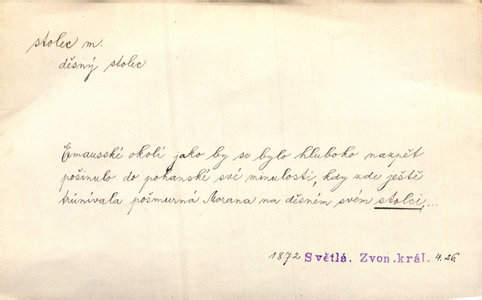 stolec m.
děsný stolec
Emausské okolí jako by se bylo hluboko nazpět
pošinulo do pohanské své minulosti, kdy zde ještě
trůnívala pošmurná Morana na děsném svém stolci,...
1872 Světlá. Zvon.král. 4.26